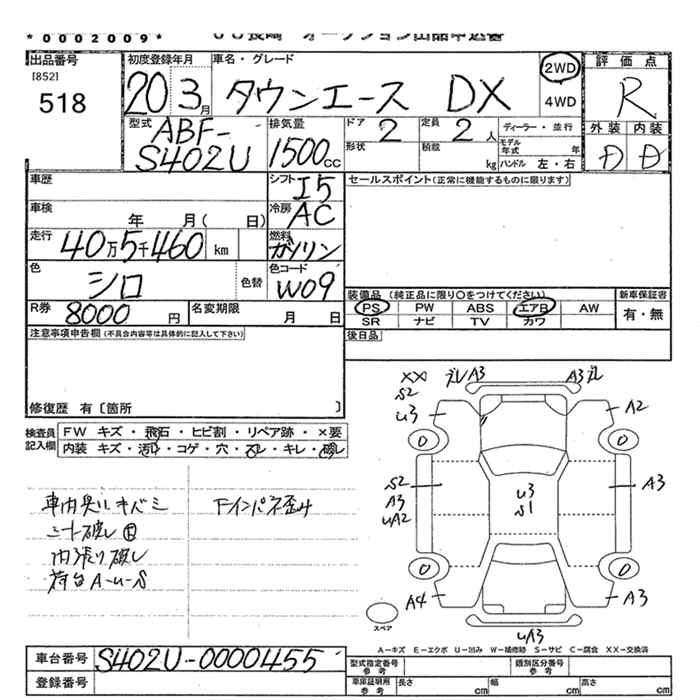 *0002009*
出品番号
[852]
518
初度登録年月
20 3月
車名・グレード
タウンエース DX
2WD
4WD
評価点
R
外装 内装
D D
型式
ABF-
S402U
排気量
1500cc
ドア
2
定員
2人
形状
積載
kg
ディーラー・並行
モデル年式 年
ハンドル 左・右
車歴
シフト
I5
セールスポイント(正常に機能するものに限ります)
車検
年 月( 日)
冷房
AC
走行
40万5千460 km
燃料
ガソリン
色
シロ
色替
色コード
W09
装備品 (純正品に限り〇をつけてください)
新車保証書
PS PW ABS エアB AW
有・無
SR ナビ TV カワ
R券
8000円
名変期限
月 日
後日品
注意事項申告欄(不具合内容等は具体的に記入して下さい)
修復歴 有〔箇所 〕
検査員
記入欄
FW キズ・飛石・ヒビ割・リペア跡・×要
内装 キズ・汚れ・コゲ・穴・スレ・キレ・破レ
車内臭い キバミ
シート破レ
内張り破レ
荷台A-U-S
下インパネ歪み
XX
S2
U3
ズレ A3
A3 ズレ
A2
S2
A3
UA2
U3
S1
A3
A4
A3
UA3
スペア
A-キズ E-エクボ U-凹み W-補修跡 S-サビ C-腐食 XX-交換済
車台番号
S402U-0000455
登録番号
型式指定番号
参考
類別区分番号
参考
車庫証明用
参考
長さ cm
幅 cm
高さ cm